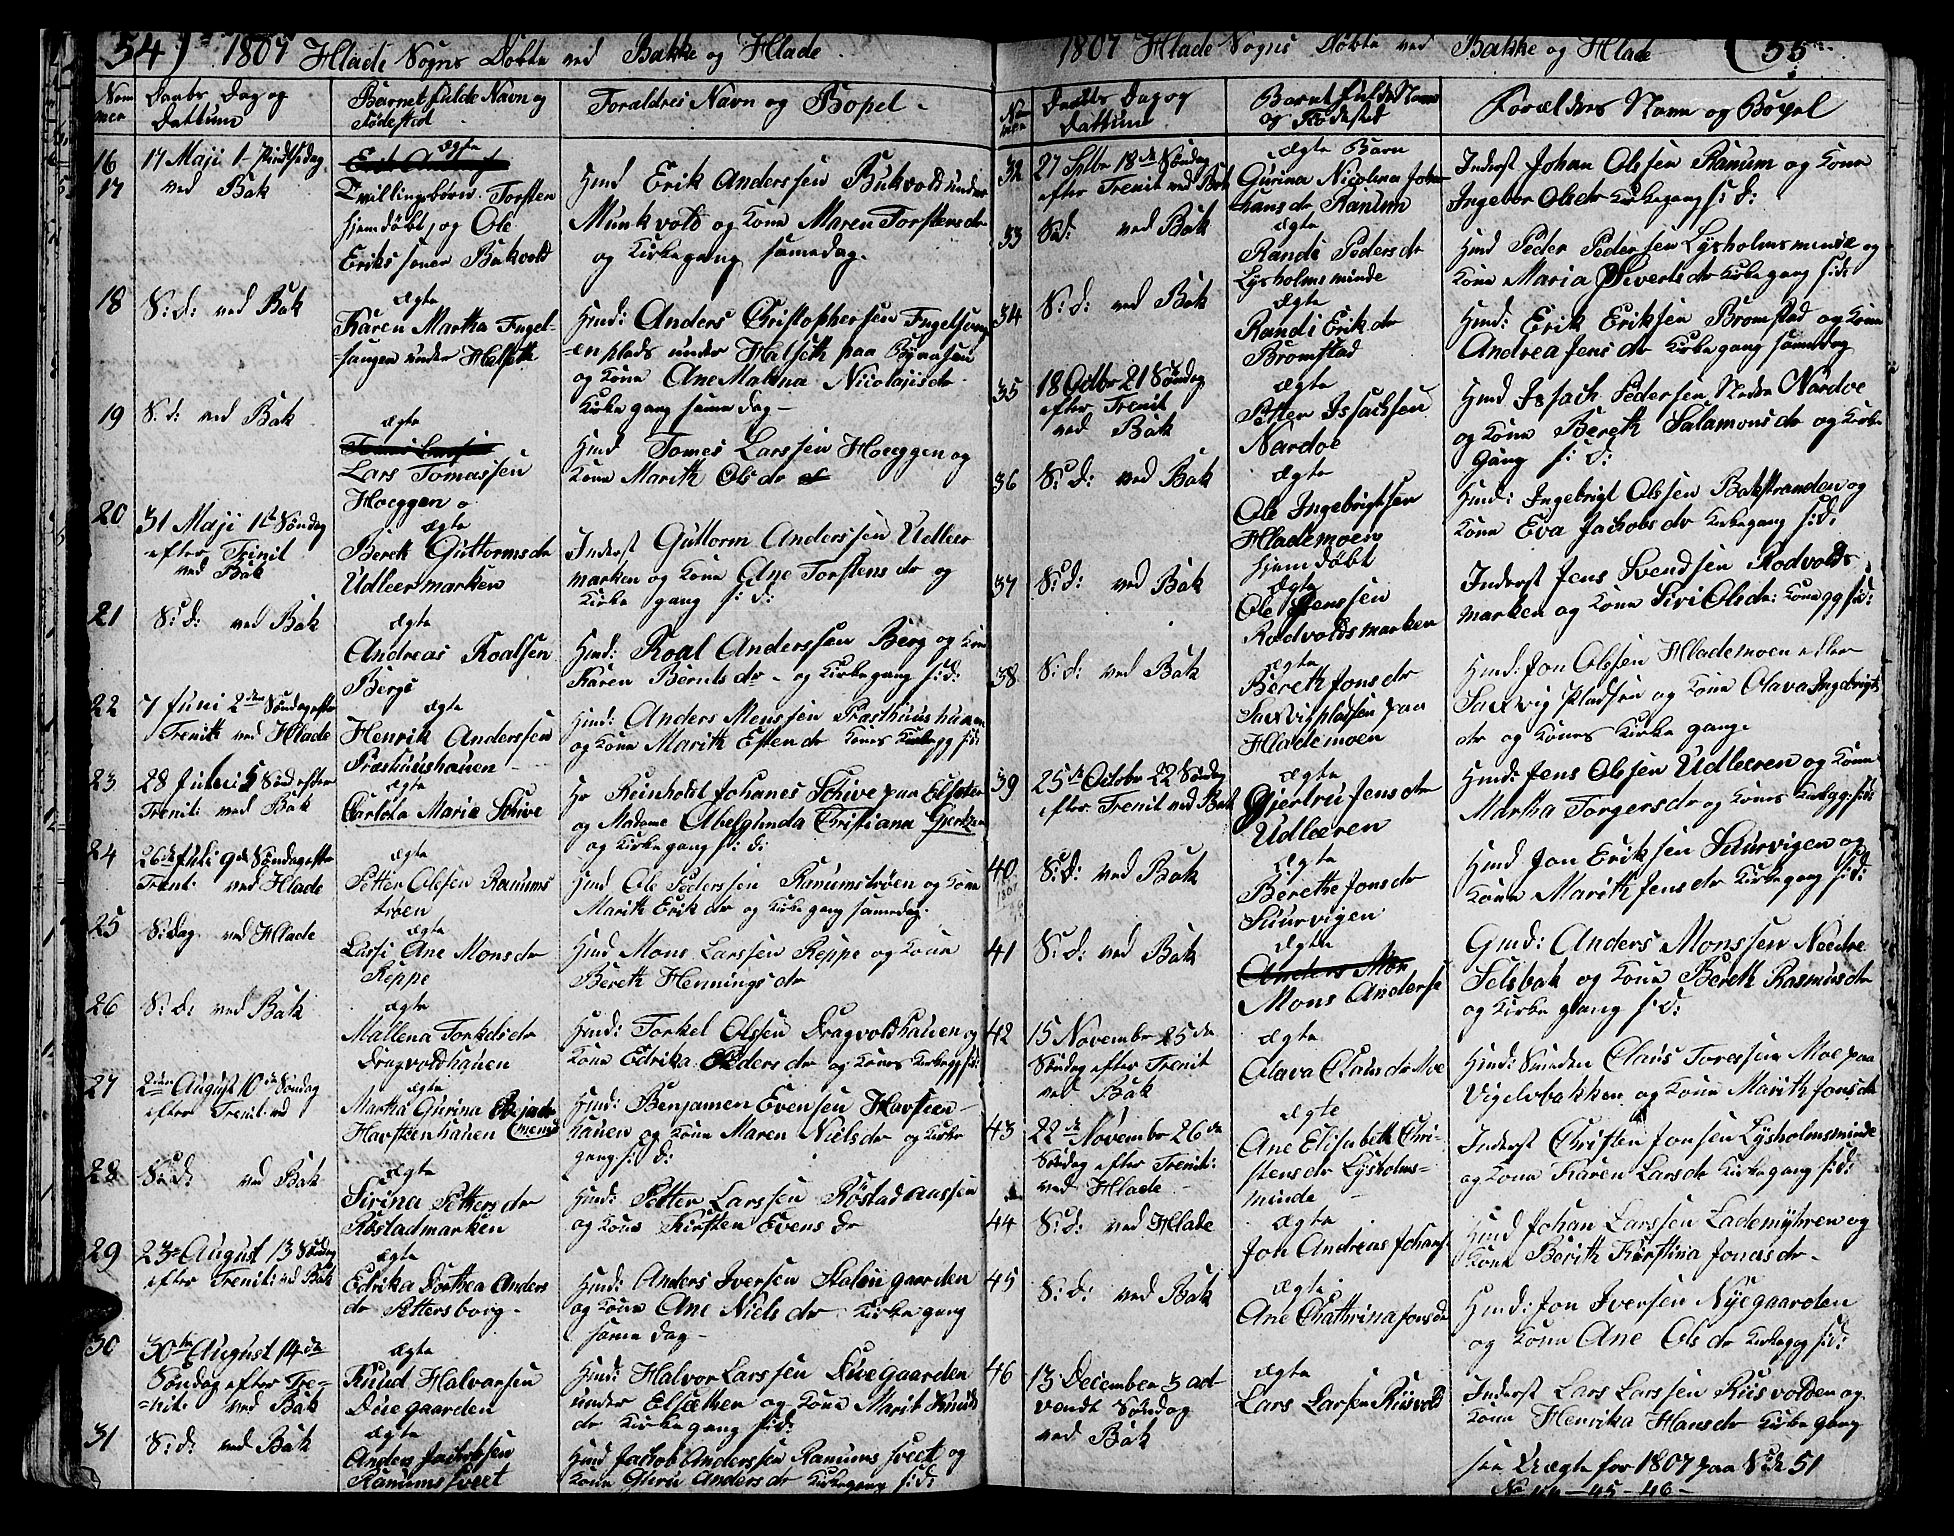 54) 1807 Hlade Sogns Døbte ved Bakke og Hlade
Nom mer
Daabs Dag og Dattum
Barnet fulde Navn og Fødested
Foraldres Navn og Bopel
16
17
17 Maji 1 Pindsedag
ved Bak
ægte
Tvillingebørn Torsten
hjemdøbt, og Ole
Eriks sener Bukvold
Hmd Erik Anderssen Bukvold under
Munkvold og Kone Maren Torstensdr
og Kirkegang samedag.
18
S: d: ved Bak
ægte
Karen Martha Engel-
sangen under Halseth
Hmd: Anders Christophersen Engelsang
en plads under Halseth paa Bynæsen
og Kone Ane Malena Nicolajsdr
Kirke gang same dag -
19
S: d: ved Bak
ægte
Lars Tomassen
Hoeggen
Hmd Tomes Larssen Hoeggen og
Kone Marith Olsdr
20
31 Maji 1ste Søndag
efter Trinit
ved Bak
ægte
Bereth Guttormsdr
Udleermarken
Inderst Guttorm Anderssen Udleer
marken og Kone Ane Torstensdr og
Kirke gang s: d:
21
S: d: ved Bak
ægte
Andreas Roalsen
Berge
Hmd: Roal Anderssen Berg og Kone
Karen Berntsdr - og Kirke gang s: d:
22
7 Juni 2den Søndag efter
Trenit ved Hlade
ægte
Henrik Anderssen
Præsthuushauen
Hmd: Anders Monssen Præsthuushauen
og Kone Marith Estendr Kones Kirkegg s: d:
23
28 Juni 5 Sønd efter
Trenit: ved Bak
ægte
Carlota Marie Schive
Hr Reinholdt Johanes Schive paa Elsæter
og Madame Abelgunda Christiana
og Kirkegang s: d:
24
26de Juli 9de Søndag efter
Trenit: ved Hlade
ægte
Petter Olsen Ranums
trøen
Hmd Ole Pederssen Ranumstrøen og Kone
Marith Erikdr og Kirke gang samedag.
25
S: dag ved Hlade
ægte
Lussi Ane Monsdr
Reppe
Hmd Mons Larssen Reppe og Kone
Bereth Henningsdr
26
S: d: ved Bak
ægte
Mallena Torkelsdr
Dragvoldhauen
Hmd: Torkel Olssen Dragvoldhauen og
Kone Edrika Pedersdr og Kones Kirkegg s: d:
27
2den August 10de Søndag
efter Trenit: ved
ægte
Martha Gurina
Havsteenhauen
Hmd: Benjamen Evensen Havsteen-
hauen og Kone Maren Nielsdr og Kirke
gang s: d:
28
S: d: ved Bak
ægte
Sirina Pettersdr
Rostadmarken
Hmd: Petter Larssen Rostad
og Kone Kirsten Evensdr
29
23de August 13 Søndag
efter Trenit: ved Bak
ægte
Edrika Dorthea Anders
dr Pettersborg -
Hmd: Anders Iversen Stalengaarden
og Kone Ane Nielsdr Kirke gang
same dag -
30
30te August 14de
Søndag efter Tre-
nit: ved Bak
ægte
Knud Halvorsen
Duegaarden
Hmd: Halvor Larssen Duegaarden
under Elsæther og Kone Marit Knuds
dr Kirkegang s: d:
31
S: d: ved Bak
ægte
Anders Jacobssen
Ranumssveet
Hmd Jachob Anderssen Ranumssveet og
Kone Guru Andersdr Kirkegang s: d:
1807 Hlade Sogns Døbte ved Bakke og Hlade (55
No mer
Daabs Dag og Dattum
Barnet fulde Navn og Fødested
Forælders Navn og Bopel
32
27 Sptbr 18de Søndag
efter Trenit ved Bak
ægte Barn
Gurina Nicolina Joha
hansdr Ranum
Inderst Johan Olssen Ranum og Kone
Ingebor Olsdr Kirkegang s: d:
33
S: d: ved Bak
ægte
Randi Pedersdr
Lysholmsminde
Hmd Peder Pedersen Lysholmsminde og
Kone Maria Sivertsdr Kirke gang s: d:
34
S: d: ved Bak
ægte
Randi Erikdr
Bromstad
Hmd: Erik Eriksen Bromstad og Kone
Andrea Jensdr Kirke gang samedag
35
18 Octbr 21 Søndag
efter Trenit
ved Bak
ægte
Petter Issachsen
Nardoe
Hmd Issach Pedersen Nedre Nardoe
og Kone Bereth Salamonsdr og Kirke
gang s: d:
36
S: d: ved Bak
ægte
Ole Ingebrigtsen
Hlademoen
hjemdøbt
Hmd: Ingebrigt Olssen Bakstranden og
Kone Eva Jachobsdr Kirkegang s: d:
37
S: d: ved Bak
ægte
Ole Jenssen
Rodvoldsmarken
Inderst Jens Svendsen Rodvolds
marken og Kone Siri Olsdr: Kone gg s: d:
38
S: d: ved Bak
ægte
Bereth Jonsdr
Saxvigpladsen paa
Hlademoen
Hmd: Jon Olssen Hlademoen eller
Saxvig Pladsen og Kone Olava Ingebrigts
dr og Kones Kirke gang.
39
25de October 22 Søndag
efter Trenit ved Bak
ægte
Gjertru Jensdr
Udleeren
Hmd: Jens Olssen Udleeren og Kone
Martha Torgersdr og Kones Kirkegg: s: d:
40
S: d: ved Bak
ægte
Berethe Jonsdr
Suurvigen
Hmd Jon Eriksen Suurvigen og
Kone Marith Jensdr Kirkegang s: d:
41
S: d: ved Bak
ægte
Mons Anderse
Gmd: Anders Monssen Nedre
Selsbak og Kone Bereth Rasmusdr
og Kirke gang s: d:
42
15 November 25de
Søndag efter Trenit
ved Bak
ægte
Olava Clausdr Moe
Hmd: Smeden Claus Toressen Moe paa
Vigelsbakken og Kone Marith Jonsdr
43
22de November 26de
Søndag efter Trenit:
ved Hlade
ægte
Ane Elisabeth Chri-
stensdr Lysholms-
minde
Inderst Christen Jonsen Lysholmsminde
og Kone Karen Larsdr Kirkegang s: d:
44
S: d: ved Hlade
ægte
Jon Andreas Johans
Hmd Johan Larssen Lademyhren og
Kone Berith Kirstina Jonasdr -
45
S: d: ved Bak
ægte
Ane Chathrina Jonsdr
Hmd: Jon Iversen Nyegaarden
og Kone Ane Olsdr Kirkegg s: d:
46
13 December 3 ad-
vendt Søndag
ved Bak
ægte
Lars Larsen Riisvold
Inderst Lars Larssen Riisvolden og
Kone Henrika Hansdr Kirke gang
see Uægte for 1807 paa Side 51
No 44 - 45 - 46 -